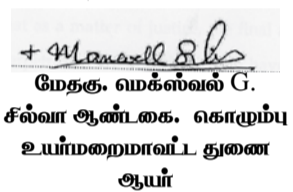 + Maxwell Silva
மேதகு. மெக்ஸ்வல் G.
சில்வா ஆண்டகை. கொழும்பு
உயர்மறைமாவட்ட துணை
ஆயர்